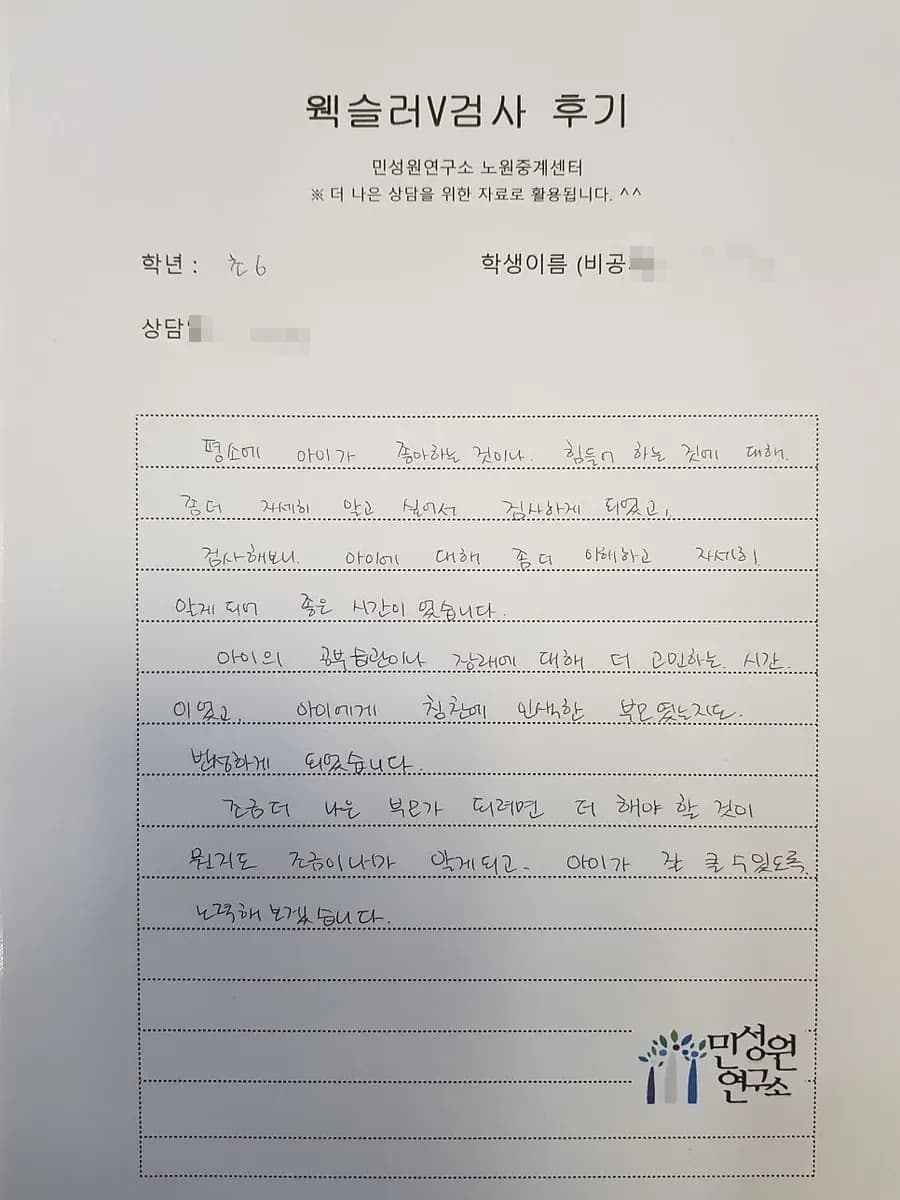 웩슬러V검사 후기
민성원연구소 노원중계센터
※ 더 나은 상담을 위한 자료로 활용됩니다. ^^
학년 : 초6
학생이름 (비공
상담
평소에 아이가 좋아하는 것이나. 힘들어 하는 것에 대해.
좀더 자세히 알고 싶어서 검사하게 되었고,
검사해보니. 아이에 대해 좀더 이해하고 자세히.
알게 되어 좋은 시간이 였습니다.
아이의 공부습관이나 장래에 대해 더 고민하는 시간.
이였고, 아이에게 칭찬에 인색한 부모였는지도.
반성하게 되었습니다.
조금더 나은 부모가 되려면 더 해야 할 것이
뭔지도 조금이나마 알게되고. 아이가 잘 클 수 있도록.
노력해 보겠습니다.
민성원
연구소